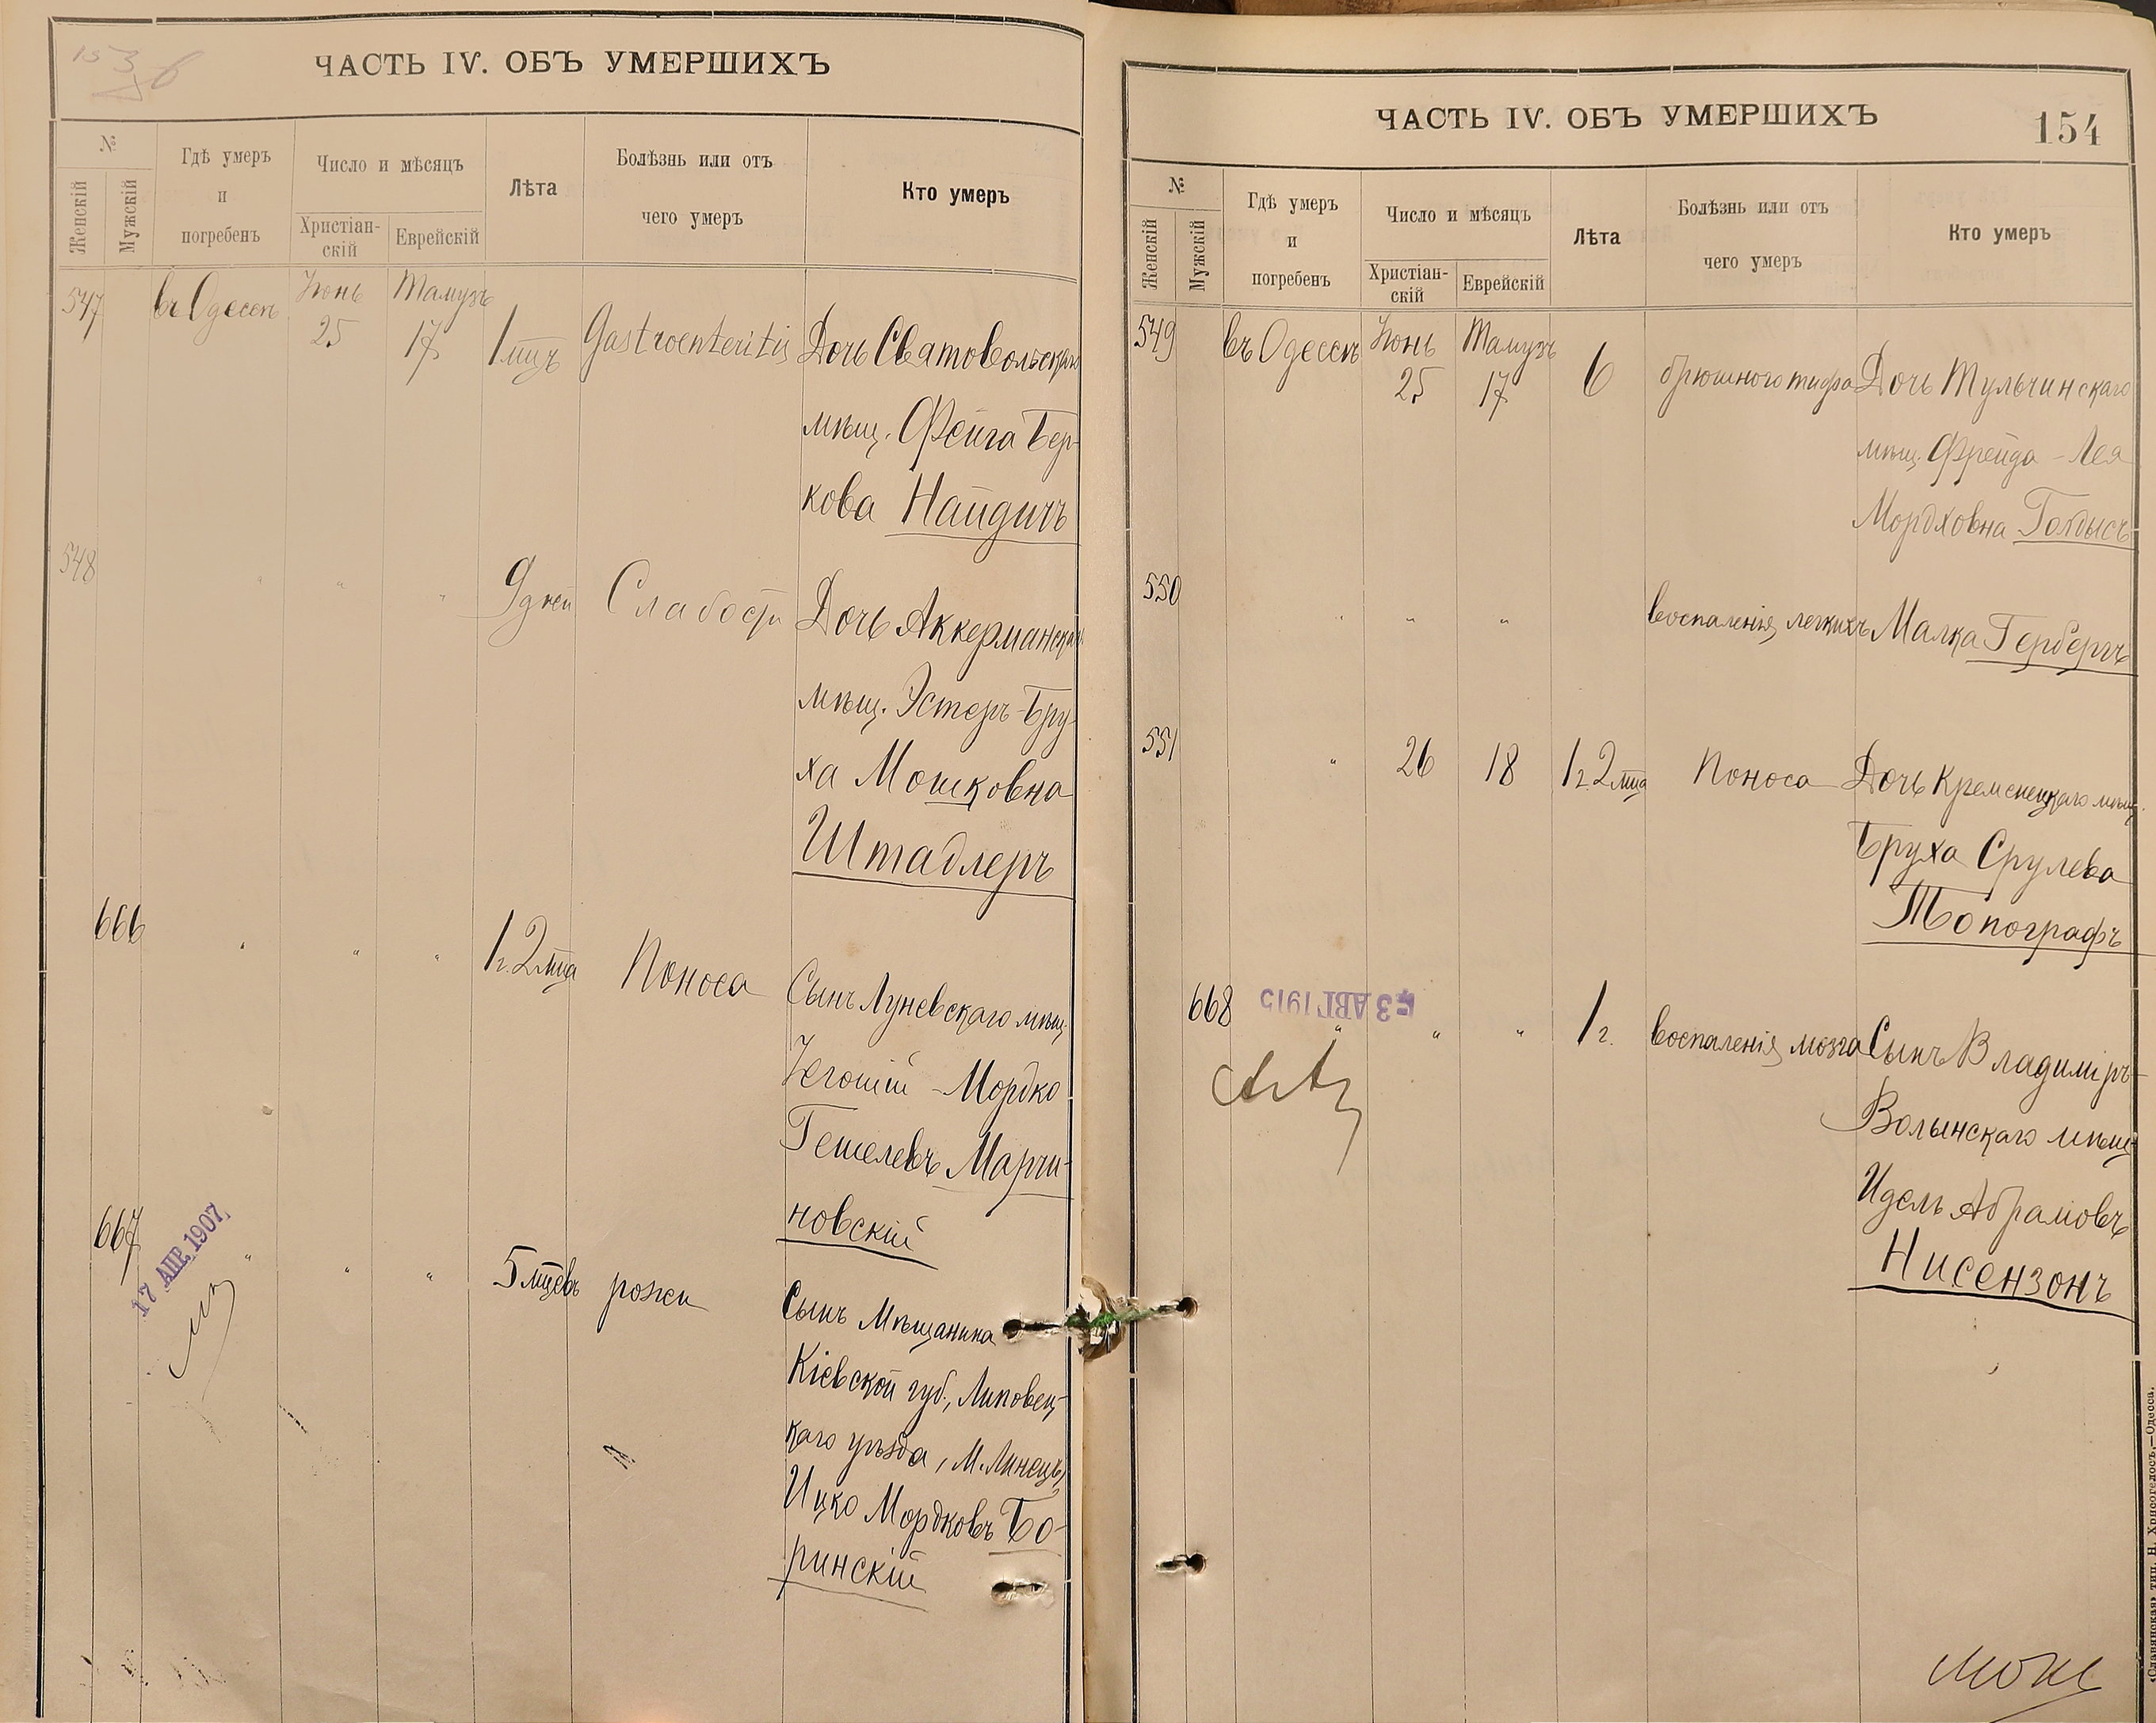 153 об
ЧАСТЬ IV. ОБЪ УМЕРШИХЪ
№
Женскій
Мужскій
Гдѣ умеръ
и
погребенъ
Число и мѣсяцъ
Христіан-
скій
Еврейскій
Лѣта
Болѣзнь или отъ
чего умеръ
Кто умеръ
547 въ Одессѣ Іюнь Тамузъ
25 17 1 мцъ Gastroenteritis Дочь Сватовольскаго
мѣщ. Фейга Бер-
кова Найдичъ
548 " " 9 дней Слабости Дочь Аккерманскаго
мѣщ. Эстеръ-Бру-
ха Мошковна
Штадлеръ
666 " " " 1г. 2 мца Поноса Сынъ Луневскаго мѣщ.
Іегошій-Мордко
Гешелевъ Марчи-
новскій
667 " " " 5 мцевъ рожи Сынъ Мѣщанина
17 АПР. 1907
Кіевской губ., Липовец-
каго уѣзда, М. Линецъ,
Ицко Мордковъ Бо-
ринскій
ЧАСТЬ IV. ОБЪ УМЕРШИХЪ
154
№
Женскій
Мужскій
Гдѣ умеръ
и
погребенъ
Число и мѣсяцъ
Христіан-
скій
Еврейскій
Лѣта
Болѣзнь или отъ
чего умеръ
Кто умеръ
549 въ Одессѣ Іюнь Тамузъ
25 17 6 брюшного тифа Дочь Тульчинскаго
мѣщ. Фрейда-Лея
Мордховна Голдысъ
550 " " " воспаленія легкихъ Малка Герберъ
551 " 26 18 1г. 2 мца Поноса Дочь Кременецкаго мѣщ.
Бруха Срулева
Топографъ
668 " " " 1 г. воспаленія мозга Сынъ Владиміръ-
3 АВГ 1915
Волынскаго мѣщ.
Идель Абрамовъ
Нисензонъ
«Славянская» тип. Н. Хрисогелосъ.—Одесса.